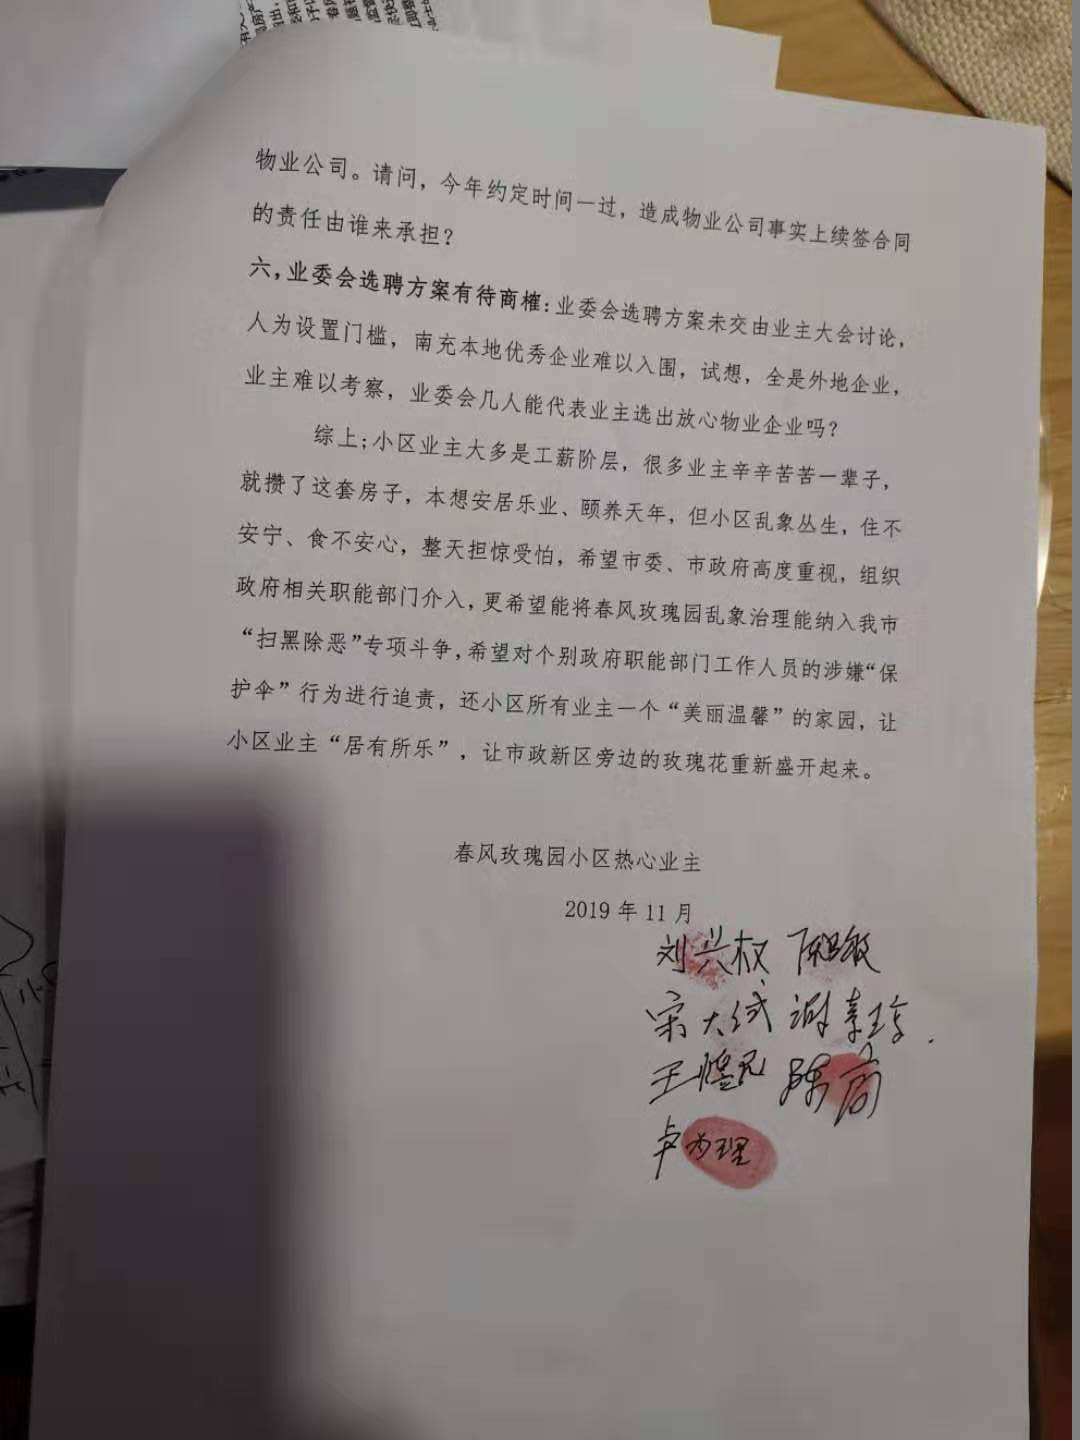 物业公司。请问，今年约定时间一过，造成物业公司事实上续签合同
的责任由谁来承担？
六，业委会选聘方案有待商榷：业委会选聘方案未交由业主大会讨论，
人为设置门槛，南充本地优秀企业难以入围，试想，全是外地企业，
业主难以考察，业委会几人能代表业主选出放心物业企业吗？
综上;小区业主大多是工薪阶层，很多业主辛辛苦苦一辈子，
就攒了这套房子，本想安居乐业、颐养天年，但小区乱象丛生，住不
安宁、食不安心，整天担惊受怕，希望市委、市政府高度重视，组织
政府相关职能部门介入，更希望能将春风玫瑰园乱象治理能纳入我市
“扫黑除恶”专项斗争，希望对个别政府职能部门工作人员的涉嫌“保
护伞”行为进行追责，还小区所有业主一个“美丽温馨”的家园，让
小区业主“居有所乐”，让市政新区旁边的玫瑰花重新盛开起来。
春风玫瑰园小区热心业主
2019 年 11 月
刘兴权
宋大斌